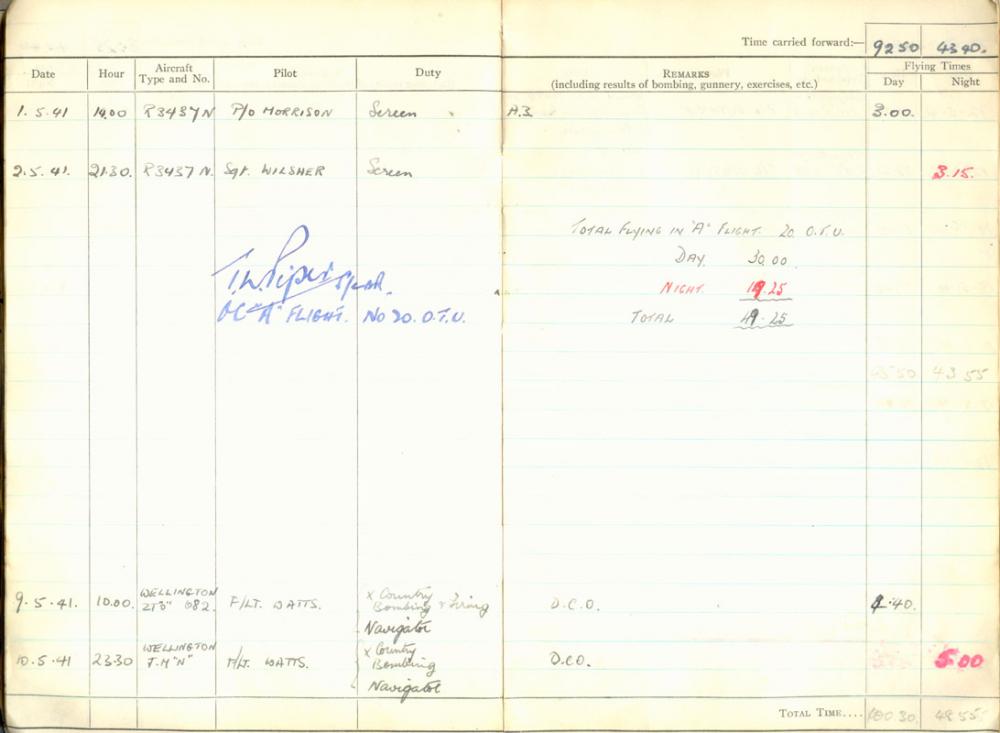 Time carried forward:— 92 50 43 40.
Date Hour Aircraft Type and No. Pilot Duty REMARKS (including results of bombing, gunnery, exercises, etc.) Flying Times Day Night
1.5.41 14.00 R3437 N P/O MORRISON Screen A.3. 3.00.
2.5.41. 21.30. R3437 N. Sgt. WILSHER Screen 3.15.
TOTAL FLYING IN "A" FLIGHT. 20 O.T.U.
DAY. 30.00
NIGHT. 19.25
TOTAL 49.25
OC "A" FLIGHT. No 20. O.T.U.
95 50 43 55
9.5.41. 10.00. WELLINGTON F/LT. WATTS. X Country Bombing & Firing Navigator D.C.O. 40.
10.5.41 23.30 WELLINGTON "N" F/LT. WATTS. X Country Bombing Navigator D.C.O. 5.00
TOTAL TIME.... 100 30. 48 55